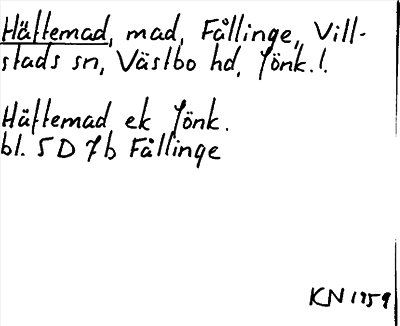 Hältemad, mad, Fållinge, Vill-
stads sn, Västbo hd, Jönk. l.
Hältemad ek Jönk.
bl. 5 D 7 b Fållinge
KN 1959